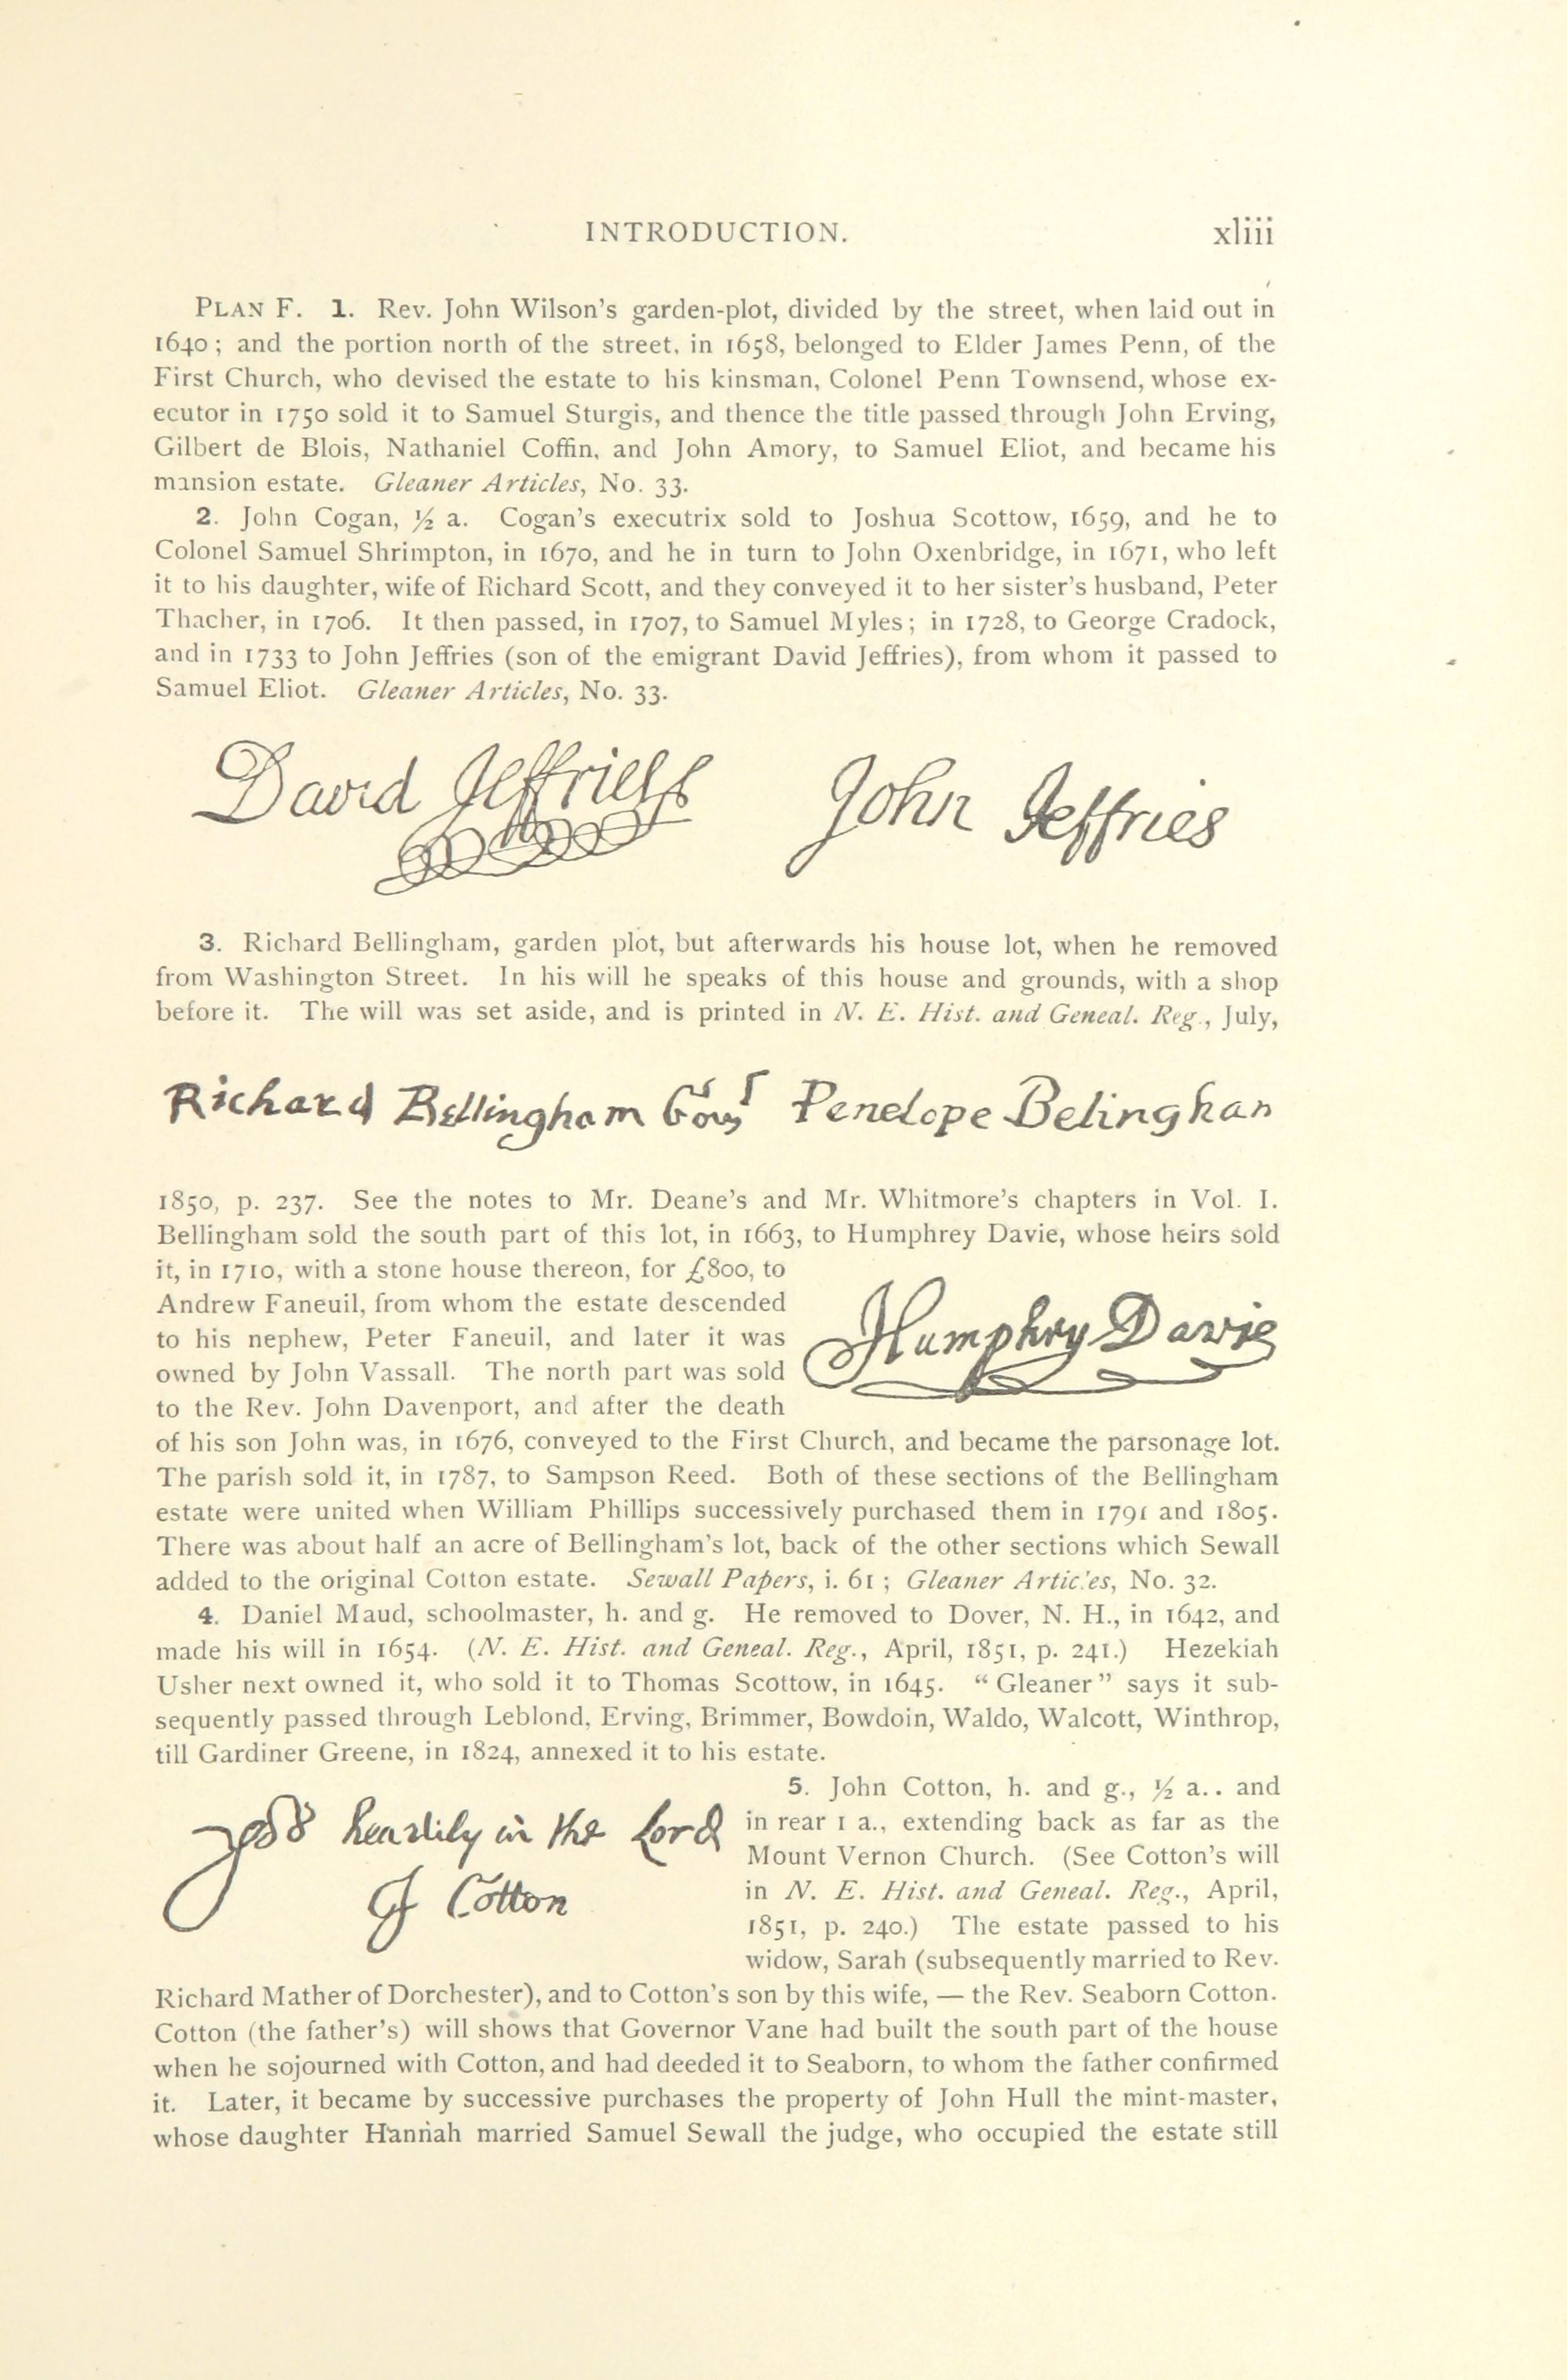 INTRODUCTION. xliii
PLAN F. 1. Rev. John Wilson's garden-plot, divided by the street, when laid out in
1640; and the portion north of the street, in 1658, belonged to Elder James Penn, of the
First Church, who devised the estate to his kinsman, Colonel Penn Townsend, whose ex-
ecutor in 1750 sold it to Samuel Sturgis, and thence the title passed through John Erving,
Gilbert de Blois, Nathaniel Coffin, and John Amory, to Samuel Eliot, and became his
mansion estate. Gleaner Articles, No. 33.
2. John Cogan, ½ a. Cogan's executrix sold to Joshua Scottow, 1659, and he to
Colonel Samuel Shrimpton, in 1670, and he in turn to John Oxenbridge, in 1671, who left
it to his daughter, wife of Richard Scott, and they conveyed it to her sister's husband, Peter
Thacher, in 1706. It then passed, in 1707, to Samuel Myles; in 1728, to George Cradock,
and in 1733 to John Jeffries (son of the emigrant David Jeffries), from whom it passed to
Samuel Eliot. Gleaner Articles, No. 33.
David Jeffries John Jeffries
3. Richard Bellingham, garden plot, but afterwards his house lot, when he removed
from Washington Street. In his will he speaks of this house and grounds, with a shop
before it. The will was set aside, and is printed in N. E. Hist. and Geneal. Reg., July,
Richard Bellingham Penelope Belinghan
1850, p. 237. See the notes to Mr. Deane's and Mr. Whitmore's chapters in Vol. I.
Bellingham sold the south part of this lot, in 1663, to Humphrey Davie, whose heirs sold
it, in 1710, with a stone house thereon, for £800, to
Andrew Faneuil, from whom the estate descended
to his nephew, Peter Faneuil, and later it was
owned by John Vassall. The north part was sold
to the Rev. John Davenport, and after the death
Humphry Davie
of his son John was, in 1676, conveyed to the First Church, and became the parsonage lot.
The parish sold it, in 1787, to Sampson Reed. Both of these sections of the Bellingham
estate were united when William Phillips successively purchased them in 1791 and 1805.
There was about half an acre of Bellingham's lot, back of the other sections which Sewall
added to the original Cotton estate. Sewall Papers, i. 61; Gleaner Articles, No. 32.
4. Daniel Maud, schoolmaster, h. and g. He removed to Dover, N. H., in 1642, and
made his will in 1654. (N. E. Hist. and Geneal. Reg., April, 1851, p. 241.) Hezekiah
Usher next owned it, who sold it to Thomas Scottow, in 1645. "Gleaner" says it sub-
sequently passed through Leblond, Erving, Brimmer, Bowdoin, Waldo, Walcott, Winthrop,
till Gardiner Greene, in 1824, annexed it to his estate.
heartily in the Lord
J Cotton
5. John Cotton, h. and g., ½ a.. and
in rear 1 a., extending back as far as the
Mount Vernon Church. (See Cotton's will
in N. E. Hist. and Geneal. Reg., April,
1851, p. 240.) The estate passed to his
widow, Sarah (subsequently married to Rev.
Richard Mather of Dorchester), and to Cotton's son by this wife, — the Rev. Seaborn Cotton.
Cotton (the father's) will shows that Governor Vane had built the south part of the house
when he sojourned with Cotton, and had deeded it to Seaborn, to whom the father confirmed
it. Later, it became by successive purchases the property of John Hull the mint-master,
whose daughter Hannah married Samuel Sewall the judge, who occupied the estate still